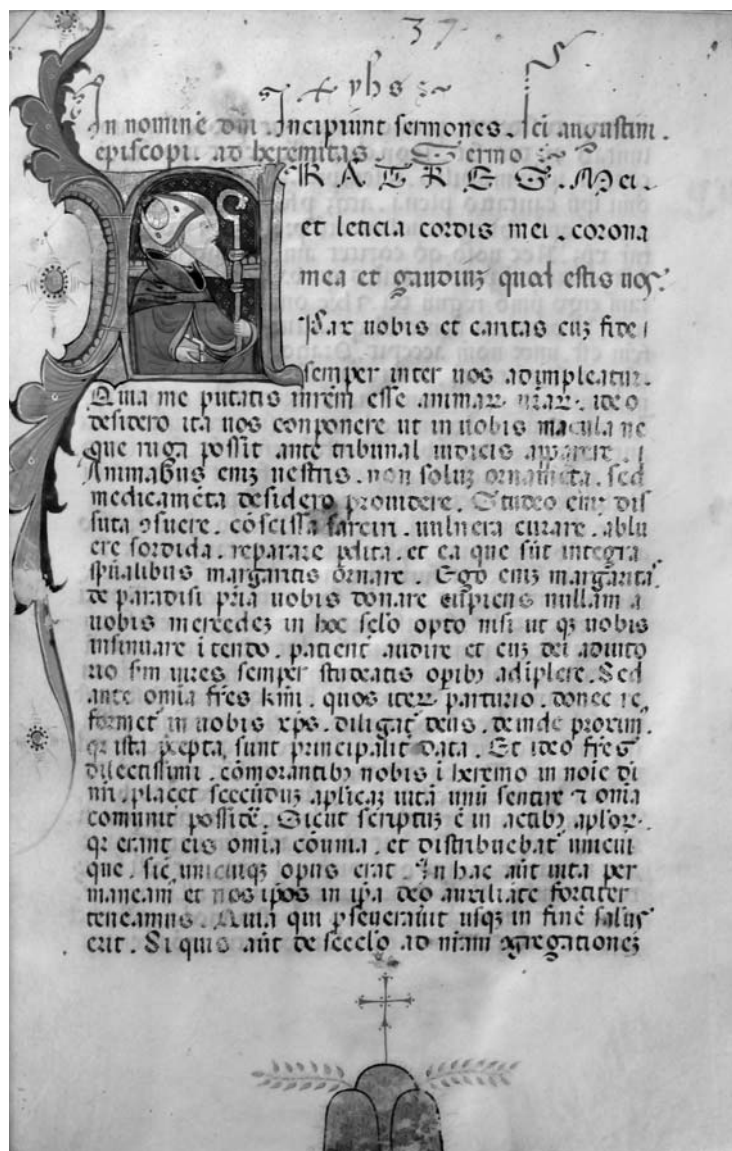 37
yhs
In nomine dni. Incipiunt sermones. sci augustini.
episcopi. ad heremitas. Sermo
FRATRES. Mei.
et leticia cordis mei. corona
mea et gaudiuz quod estis uos.
Pax uobis et caritas cuz fide
semper inter uos adimpleatur.
Quia me putatis inrem esse animar. urar. ideo
desidero ita uos componere ut in uobis macula ne
que ruga possit ante tribunal iudicis apparere.
Animabus eniz uestris. non soluz ornameta. sed
medicameta desidero prouidere. Studeo eniz dis
suta ɔsuere. coscissa sarciri. uulnera curare. ablu
ere sordida. reparare pdita. et ea que sut integra
spualibus margaritis ornare. Ego eniz margarita
de paradisi pria uobis donare cupiens nullam a
uobis mercedez in hoc sclo opto nisi ut qz uobis
insinuare itendo. patient audire et cuz dei adiuto
rio sm uires semper studeatis opibz adiplere. Sed
ante omia fres kmi. quos iter parturio. donec re
formet in uobis xps. diligat deus. deinde proxim.
qr ista pcepta sunt principalit data. Et ideo fres
dilectissimi. comorantibz nobis i heremo in noie di
ni. placet secuduz aplicaz uita unu sentire ⁊ omia
comunit possidé. Sicut scriptuz e in actibz aplor.
qr erant eis omia couna. et distribuebat unicui
que. sic unicuiqz opus erat. In hac aut uita per
maneam et nos ipos in ipa deo auxiliate fortiter
teneamus. Quia qui pseuerauit usqz in fine saluus
erit. Si quis aut de seculo ad nram agregationez